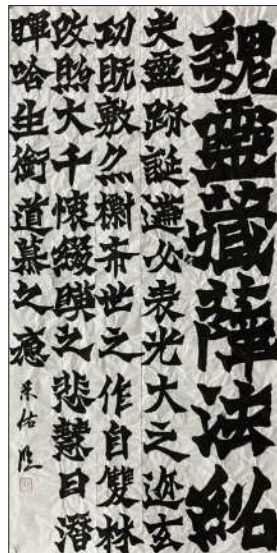 魏靈藏薛法紹
夫靈跡誕遘必表光大之迹玄
功既敷亦標希世之作自雙林
改照大千懷綴暎之悲慧日潛
暉哈生銜道慕之痛